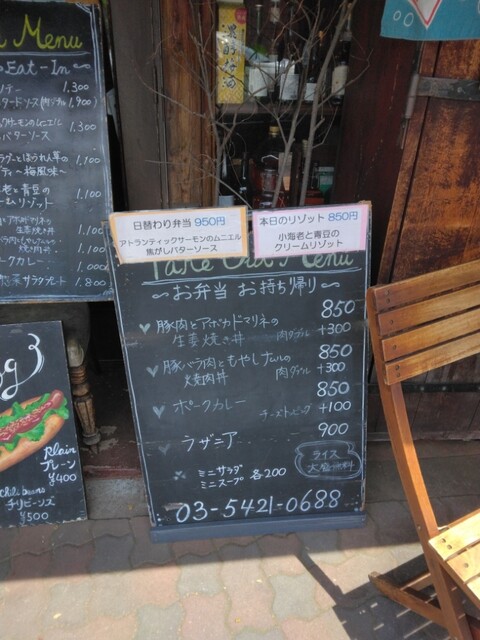 Menu
Eat-In
1.300
1.900)
1.300
バターソース
1.100
1.100
1.100
1.800
日替わり弁当 950円
アトランティックサーモンのムニエル
焦がしバターソース
本日のリゾット 850円
小海老と青豆の
クリームリゾット
Take Out Menu
〜お弁当 お持ち帰り〜
豚肉とアボカドマリネの 850
生姜焼き丼 肉ダブル +300
豚バラ肉ともやしナムルの 850
焼肉丼 肉ダブル +300
ポークカレー 850
チーズトッピング +100
ラザニア 900
ミニサラダ
ミニスープ 各200
ライス
大盛無料
03-5421-0688
Plain
プレーン
¥400
Chili beans
チリビーンズ
¥500